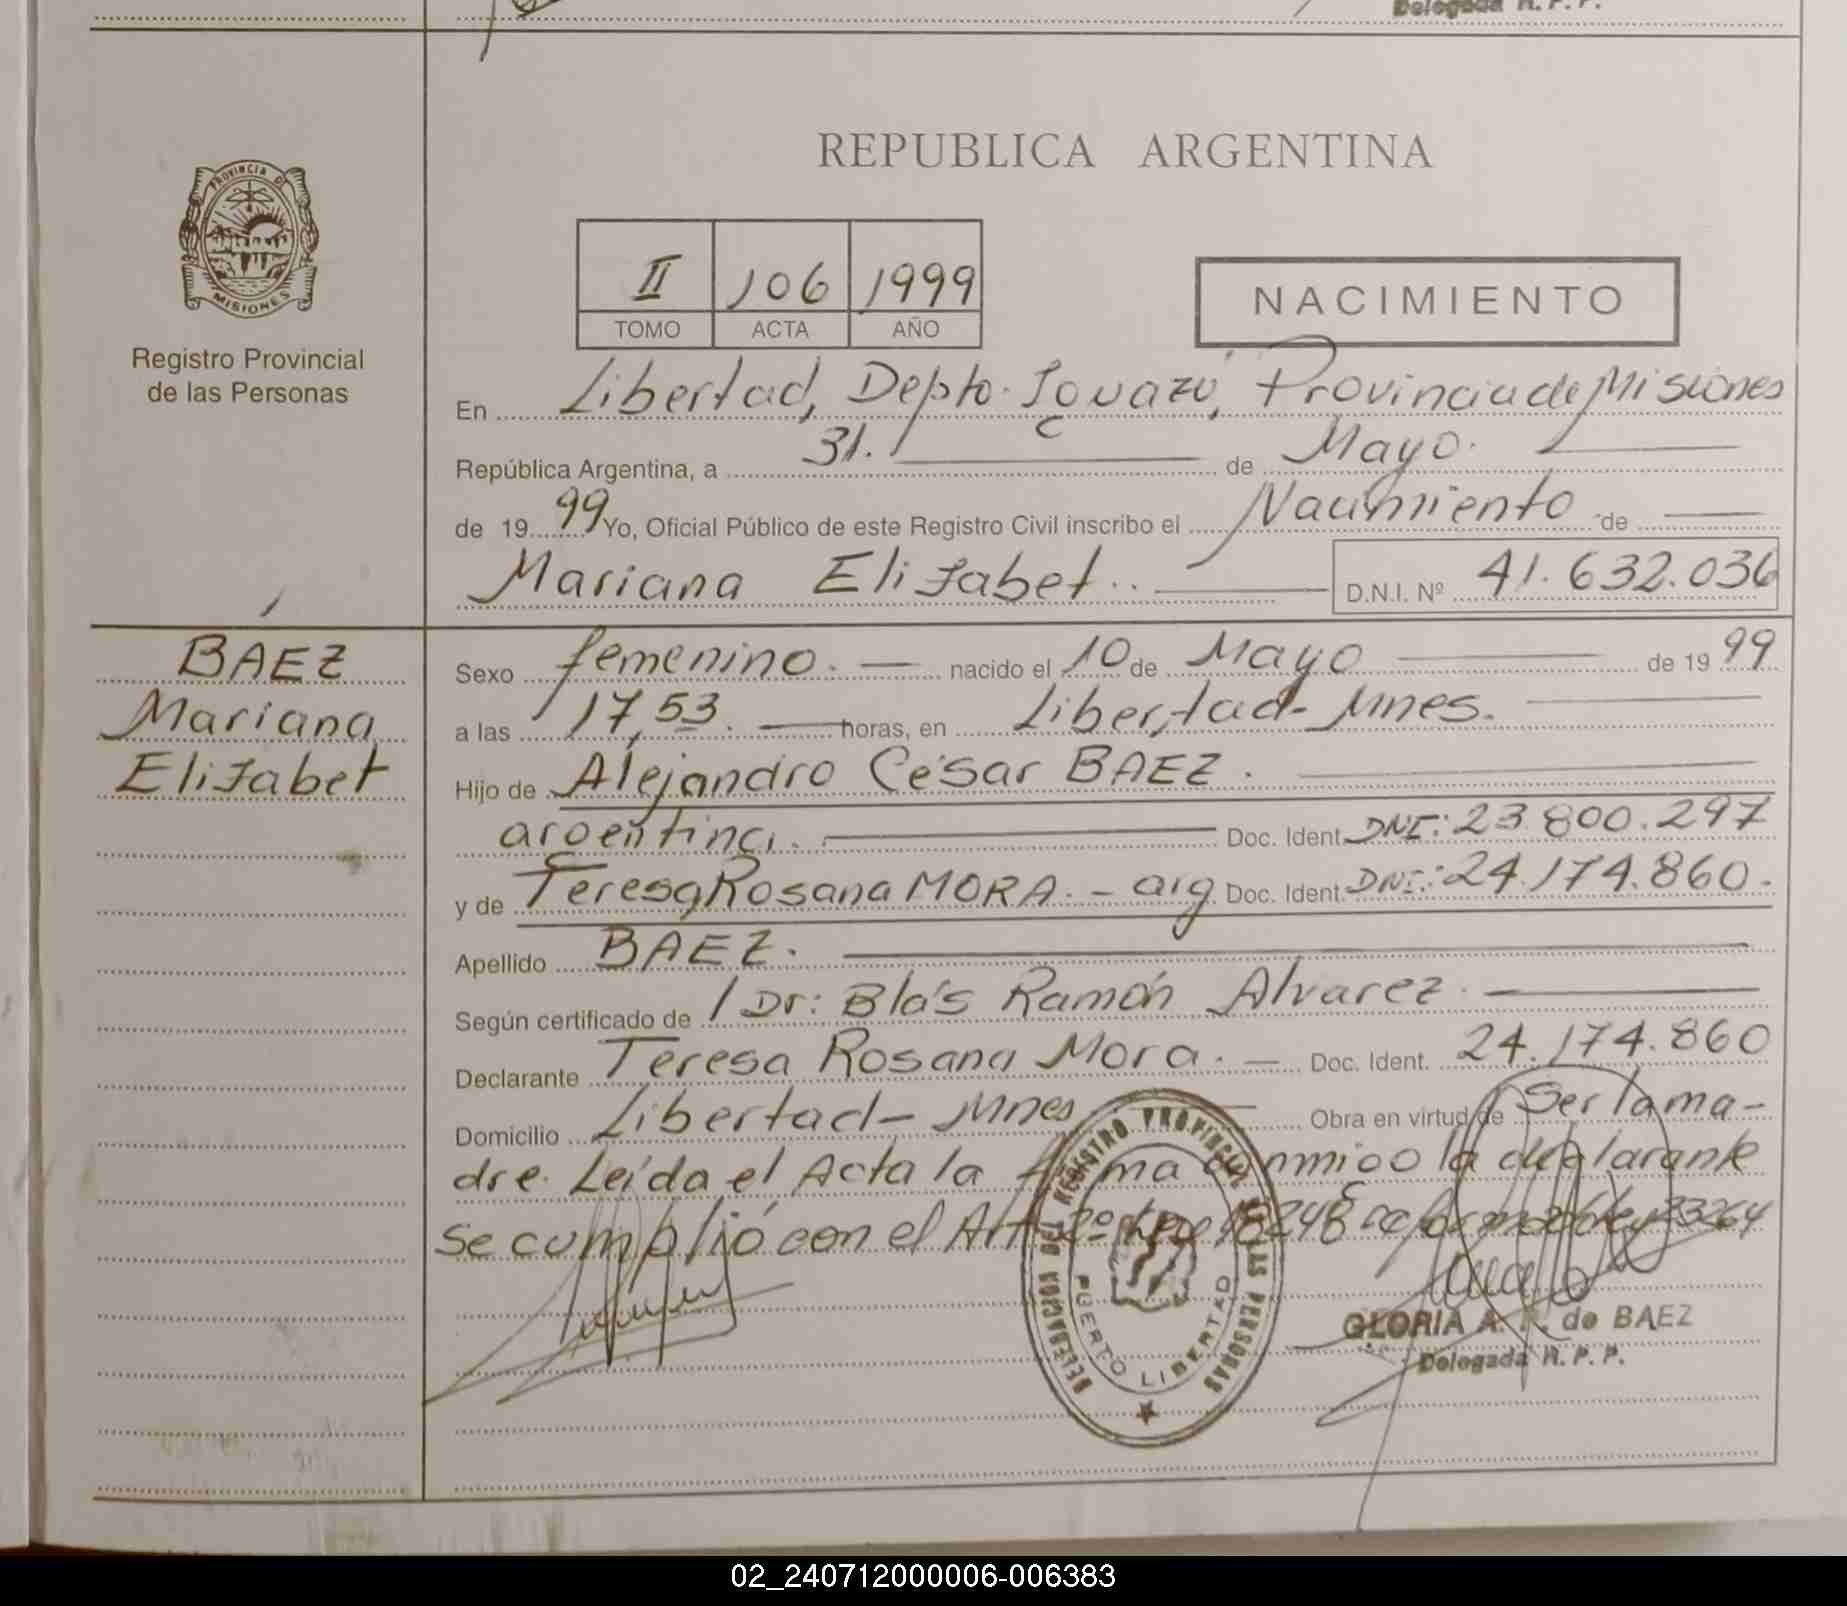 Delegada R. P. P.
REPUBLICA ARGENTINA
PROVINCIA DE
MISIONES
Registro Provincial
de las Personas
II 106 1999
TOMO ACTA AÑO
NACIMIENTO
En Libertad, Depto. Iguazú, Provincia de Misiones
República Argentina, a 31. de Mayo.
de 19 99 Yo, Oficial Público de este Registro Civil inscribo el Nacimiento de
Mariana Elizabet.. D.N.I. Nº 41.632.036
BAEZ
Mariana
Elizabet
Sexo femenino. nacido el 10 de Mayo de 19 99
a las 17,53. horas, en Libertad- Mnes.
Hijo de Alejandro César BAEZ.
argentina. Doc. Ident. DNI: 23.800.297
y de Teresa Rosana MORA. - arg. Doc. Ident. DNI: 24.174.860.
Apellido BAEZ.
Según certificado de Dr: Blás Ramón Alvarez.
Declarante Teresa Rosana Mora. Doc. Ident. 24.174.860
Domicilio Libertad- Mnes Obra en virtud de Ser la ma-
dre. Leída el Acta la firma conmigo la declarante
Se cumplió con el Art. 2º Ley 18248 ley 23264
DELEGACION DEL REGISTRO PROVINCIAL DE LAS PERSONAS
PUERTO LIBERTAD
GLORIA A. de BAEZ
Delegada R. P. P.
02_240712000006-006383